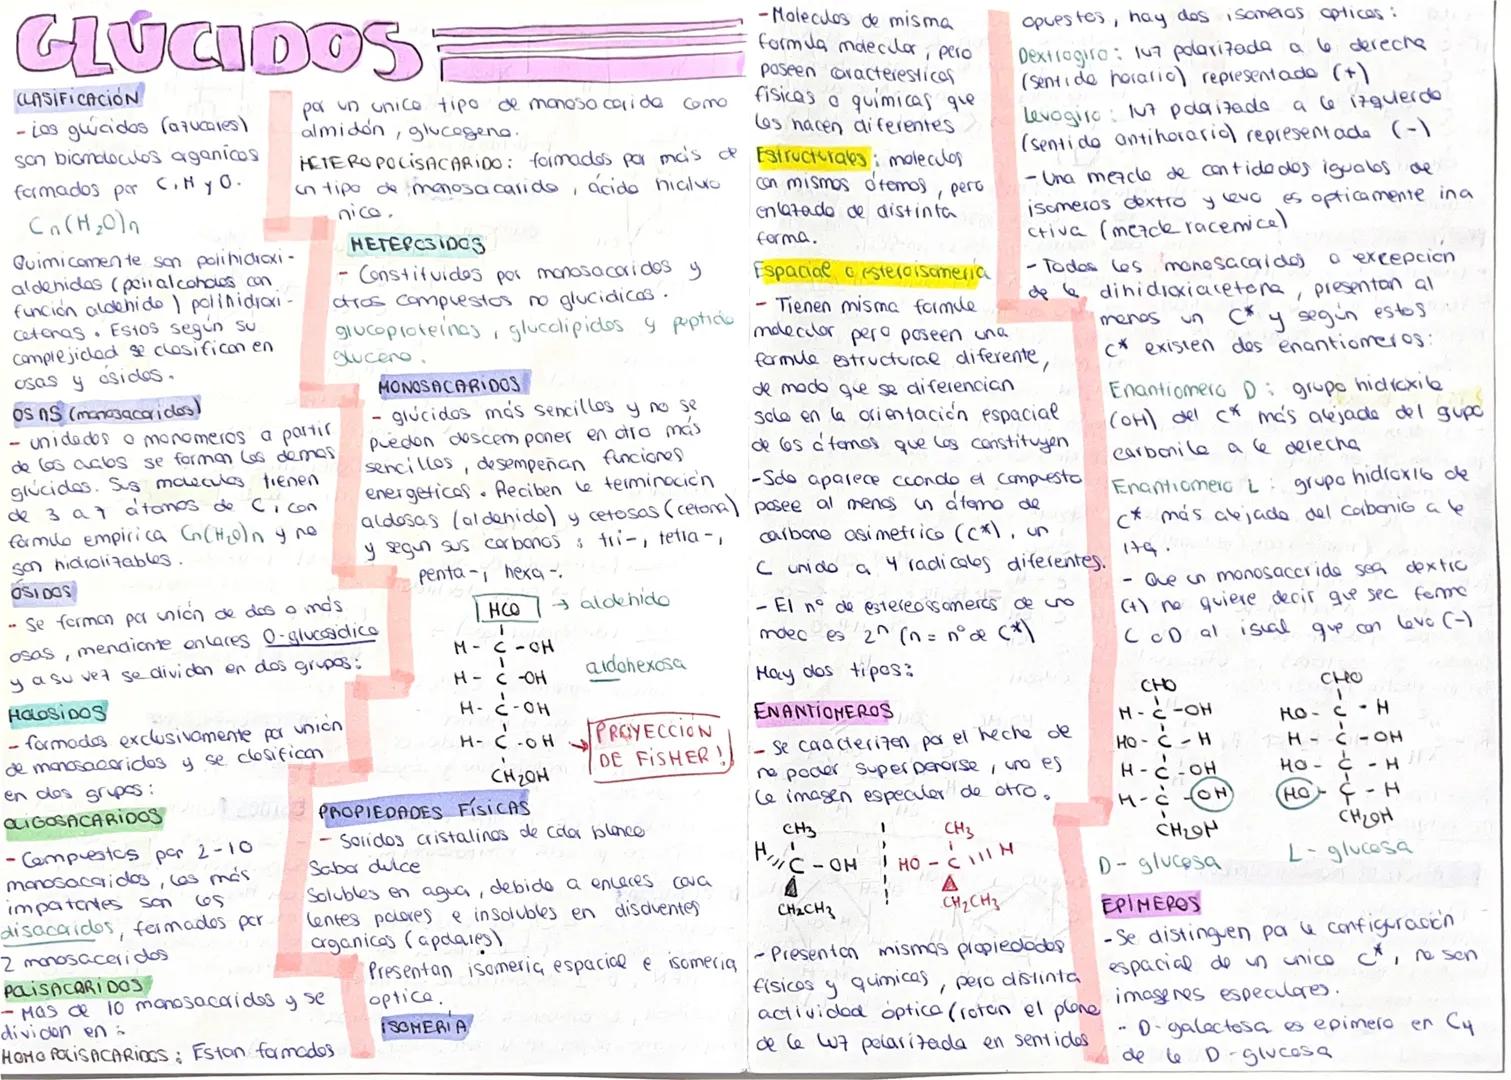 GLÚCIDOS
CLASIFICACIÓN
- Los glúcidos (azucares)
son biomoleculas organicas
formados por C, H y O.
Cn(H₂O)n
Quimicamente son polihidroxi-
aldehidos (polialcoholes con
función aldehido) polihidroxi-
cetonas. Estos según su
complejidad se clasifican en
osas y ósidos.
OSAS (monosacaridos)
- unidades o monomeros a partir
de los cuales se forman los demas
glúcidos. Sus moleculas tienen
de 3 a 7 átomos de C, con
formula empirica Cn(H₂O)n y no
son hidrolizables.
ÓSIDOS
- Se forman por unión de dos o más
osas, mendiante enlaces O-glucosidico
y a su vez se dividen en dos grupos:
HOLOSIDOS
- formados exclusivamente por unión
de monosacaridos y se clasifican
en dos grupos:
OLIGOSACARIDOS
- Compuestos por 2-10
monosacaridos, los más
importantes son los
disacaridos, formados por
2 monosacaridos
POLISACARIDOS
- Mas de 10 monosacaridos y se
dividen en:
HOMOPOLISACARIDOS: Estan formados
por un unico tipo de monosacarido como
almidón, glucogeno.
HETEROPOLISACARIDO: formados por más de
un tipo de monosacarido, ácido hialuro
nico.
HETEROSIDOS
- Constituidos por monosacaridos y
otros compuestos no glucidicos.
glucoproteínas, glucolipidos y peptido
gluceno.
MONOSACARIDOS
- glúcidos más sencillos y no se
pueden descomponer en otro más
sencillos, desempeñan funciones
energeticas. Reciben la terminación
aldosas (aldehido) y cetosas (cetona)
y segun sus carbonos: tri-, tetra-,
penta-, hexa-.
HCO → aldehido
H - C - OH
H - C - OH
aldohexosa
H - C - OH
H - C - OH
PROYECCIÓN
DE FISHER!
CH₂OH
PROPIEDADES FÍSICAS
- Solidos cristalinos de color blanco
Sabor dulce
Solubles en agua, debido a enlaces cova
lentes polares e insolubles en disolventes
organicos (apolares)
Presentan isomeria espacial e isomeria
optica.
ISOMERÍA
- Moleculas de misma
formula molecular, pero
poseen caracteristicas
físicas o químicas que
las hacen diferentes
Estructurales: moleculas
con mismos átomos, pero
enlazado de distinta
forma.
Espacial o esteroisomería
- Tienen misma formula
molecular pero poseen una
formula estructural diferente,
de modo que se diferencian
solo en la orientación espacial
de los átomos que los constituyen
- Solo aparece cuando el compuesto
posee al menos un átomo de
carbono asimetrico (C*), un
C unido a 4 radicales diferentes.
- El nº de estereoisomeros de una
molec es 2ⁿ (n = nº de C*)
Hay dos tipos:
ENANTIOMEROS
- Se caacterizan por el hecho de
no poder superponerse, uno es
la imagen especular de otro.
CH₃ CH₃
H C - OH HO - C H
CH₂CH₃ CH₂CH₃
- Presentan mismas propiedades
físicas y quimicas, pero distinta
actividad óptica (rotan el plano
de la luz polarizada en sentidos
opuestos, hay dos isomeros opticos:
Dextrogiro: luz polarizada a la derecha
(sentido horario) representado (+)
Levogiro: luz polarizada a la izquierda
(sentido antihorario) representado (-)
- Una mezcla de cantidades iguales de
isomeros dextro y levo es opticamente ina
ctiva (mezcla racemica)
- Todos los monosacaridos a excepción
de la dihidroxiacetona, presentan al
menos un C* y según estos
C* existen dos enantiomeros:
Enantiomero D: grupo hidroxilo
(OH) del C* más alejado del grupo
carbonilo a la derecha
Enantiomero L: grupo hidroxilo de
C* más alejado del carbonilo a la
izq.
- Que un monosacarido sea dextro
(+) no quiere decir que sea forma
L o D al igual que con levo (-)
CHO CHO
H - C - OH HO - C - H
HO - C - H H - C - OH
H - C - OH HO - C - H
H - C - OH HO - C - H
CH₂OH CH₂OH
D - glucosa L - glucosa
EPÍMEROS
- Se distinguen por la configuración
espacial de un unico C*, no son
imagenes especulares.
- D-galactosa es epimero en C₄
de la D-glucosa